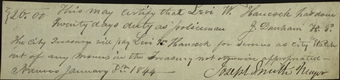 $28.00 This may certify that Levi W. Hancock has done
Twenty days duty as policeman J. Dunham H. P.
The City Treasury will pay Levi W. Hancock for Services as City Watch
out of any monies in the Treasury not otherwise appropriated
Nauvoo January 3rd 1844
Joseph Smith Mayor